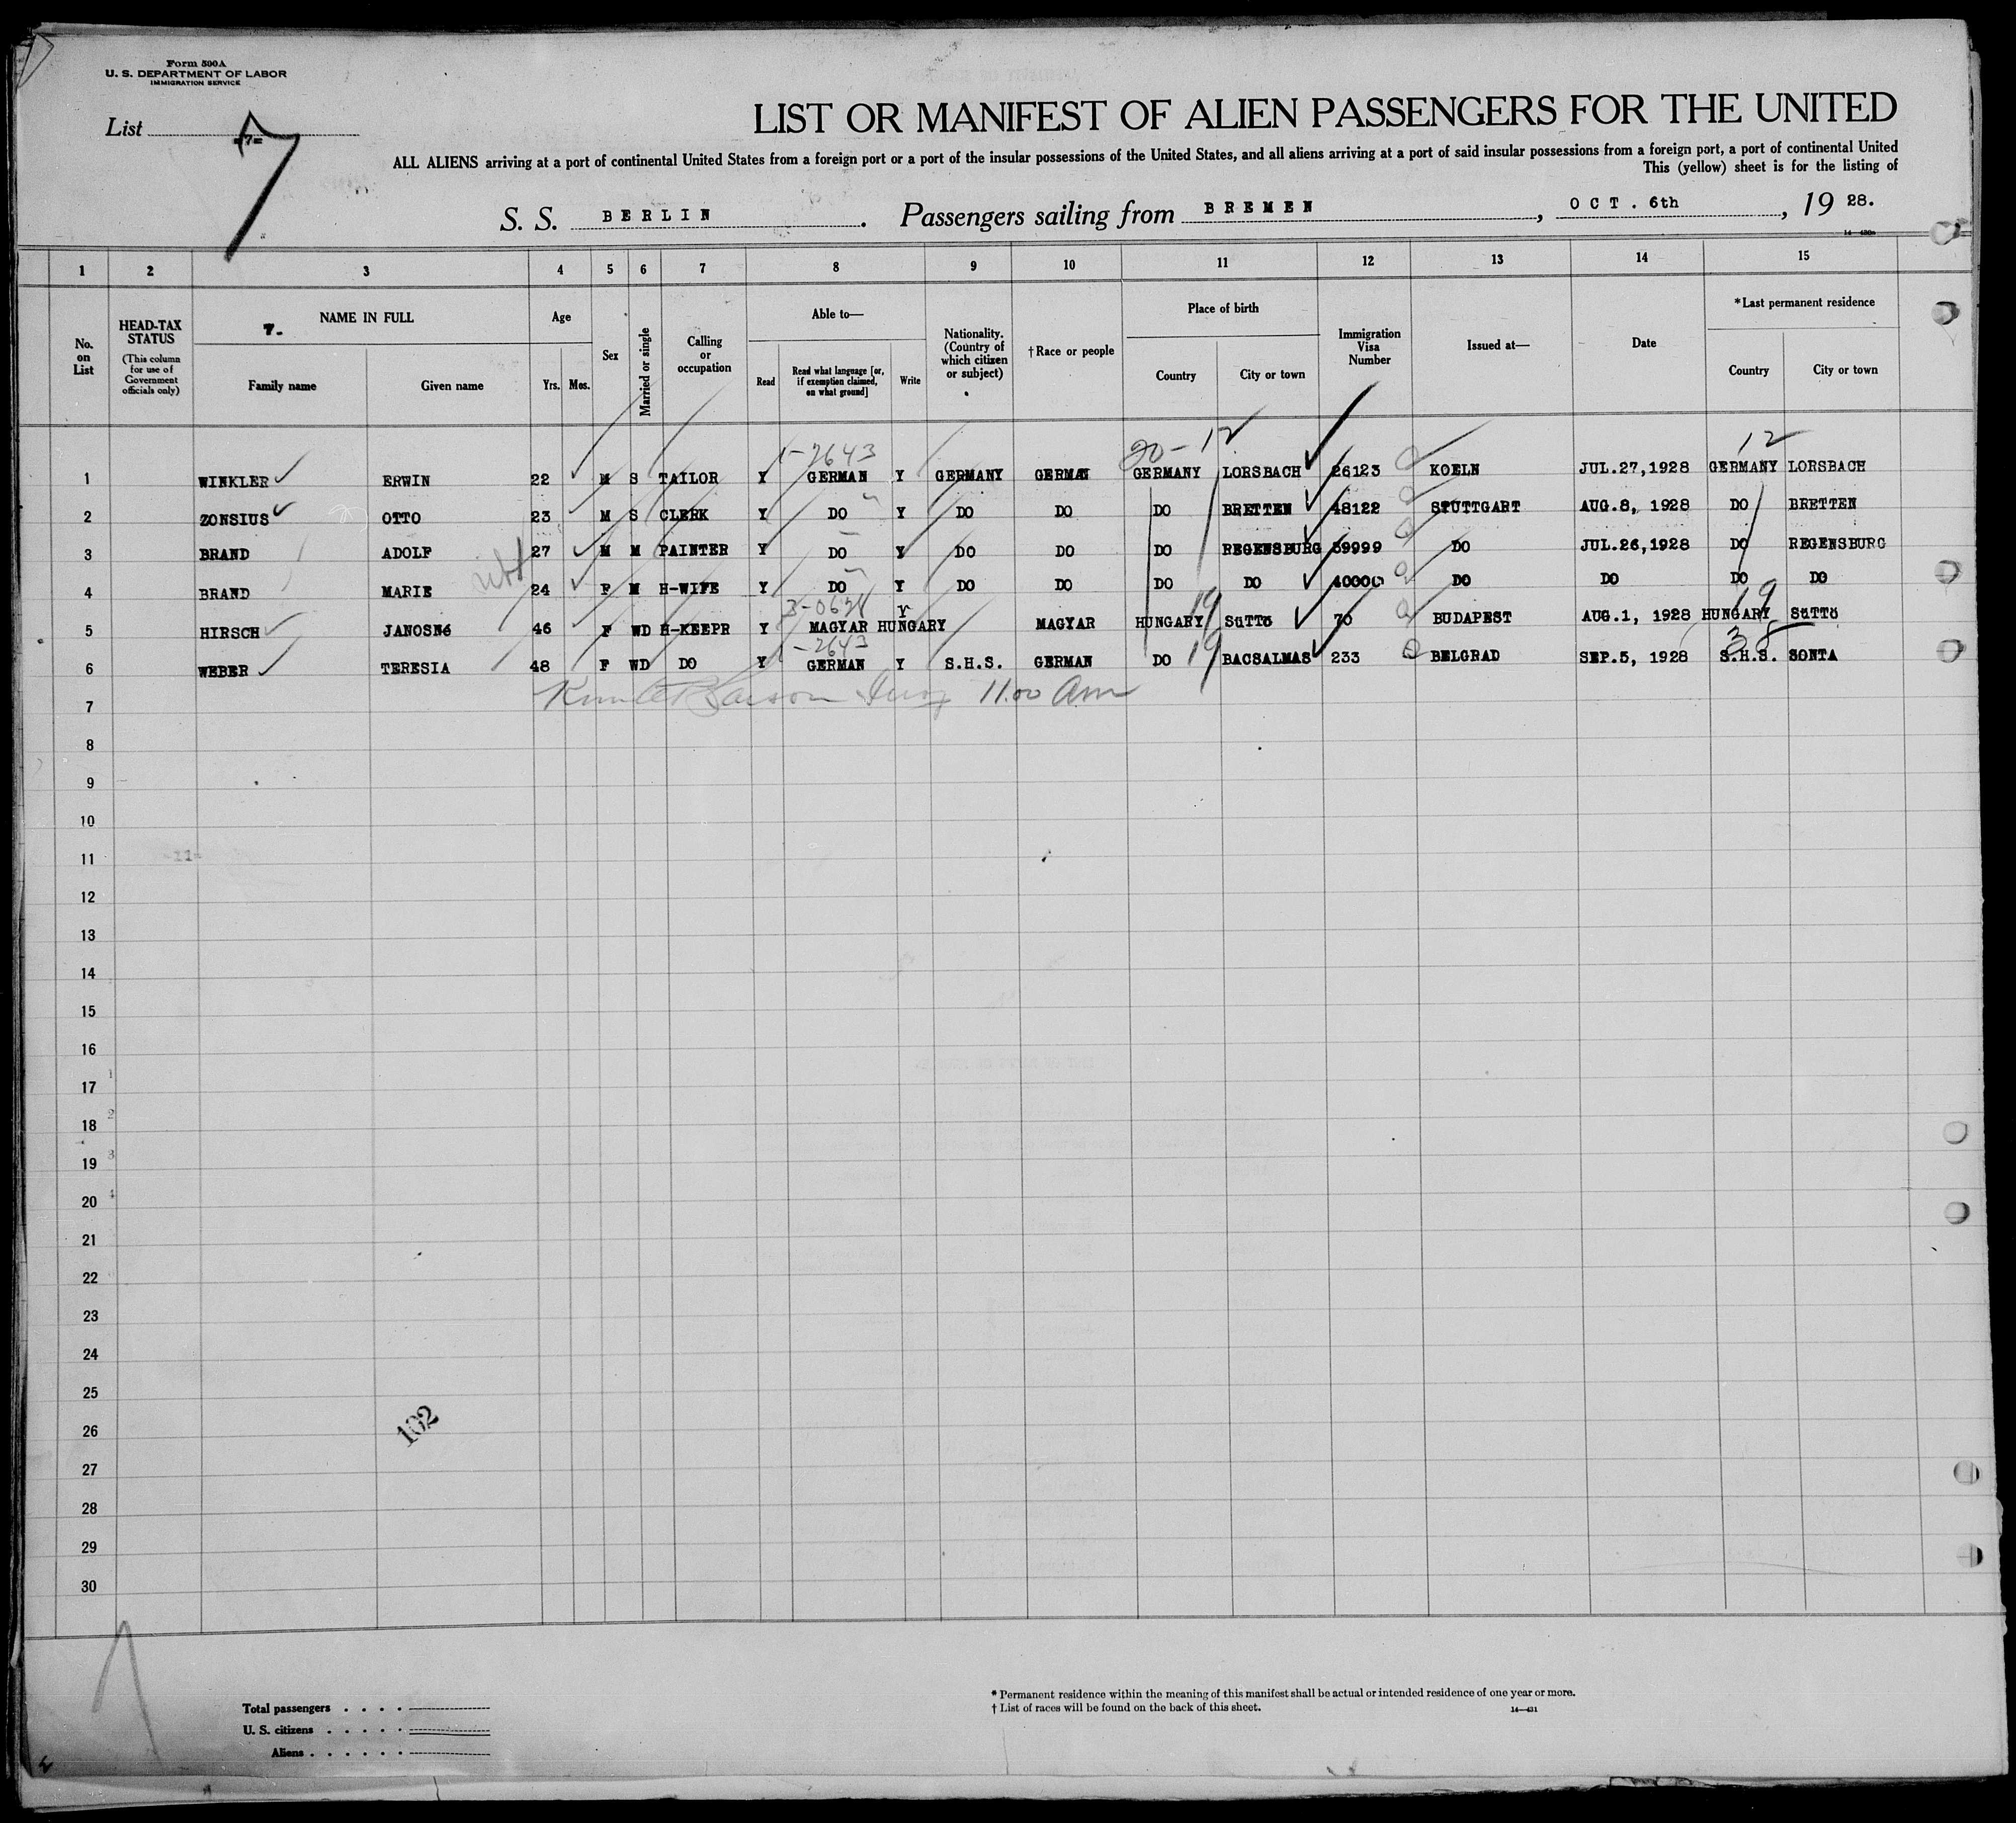 Form 500A
U. S. DEPARTMENT OF LABOR
IMMIGRATION SERVICE
List -7-
7
LIST OR MANIFEST OF ALIEN PASSENGERS FOR THE UNITED
ALL ALIENS arriving at a port of continental United States from a foreign port or a port of the insular possessions of the United States, and all aliens arriving at a port of said insular possessions from a foreign port, a port of continental United
This (yellow) sheet is for the listing of
S. S. BERLIN. Passengers sailing from BREMEN, OCT. 6th, 19 28.
14—430a
1 2 3 4 5 6 7 8 9 10 11 12 13 14 15
No. on List
HEAD-TAX STATUS (This column for use of Government officials only)
7. NAME IN FULL Family name Given name
Age Yrs. Mos.
Sex
Married or single
Calling or occupation
Able to— Read Read what language [or, if exemption claimed, on what ground] Write
Nationality. (Country of which citizen or subject)
†Race or people
Place of birth Country City or town
Immigration Visa Number
Issued at—
Date
*Last permanent residence Country City or town
1-2643 20-12 12
1 WINKLER ERWIN 22 M S TAILOR Y GERMAN Y GERMANY GERMAN GERMANY LORSBACH 26123 KOELN JUL.27,1928 GERMANY LORSBACH
2 ZONSIUS OTTO 23 M S CLERK Y DO Y DO DO DO BRETTEN 48122 STUTTGART AUG.8, 1928 DO BRETTEN
3 BRAND ADOLF 27 M M PAINTER Y DO Y DO DO DO REGENSBURG 39999 DO JUL.26,1928 DO REGENSBURG
4 BRAND MARIE 24 F M H-WIFE Y DO Y DO DO DO DO 40000 DO DO DO DO
19 19
5 HIRSCH JANOSNé 46 F WD H-KEEPR Y MAGYAR Y HUNGARY MAGYAR HUNGARY SüTTö 70 BUDAPEST AUG.1, 1928 HUNGARY SüTTö
1-2643 19 38
6 WEBER TERESIA 48 F WD DO Y GERMAN Y S.H.S. GERMAN DO BACSALMAS 233 BELGRAD SEP.5, 1928 S.H.S. SONTA
7 11.00 am
8
9
10
11 -11-
12
13
14
15
16
17
18
19
20
21
22
23
24
25
26 102
27
28
29
30
Total passengers
U. S. citizens
Aliens
* Permanent residence within the meaning of this manifest shall be actual or intended residence of one year or more.
† List of races will be found on the back of this sheet.
14—431